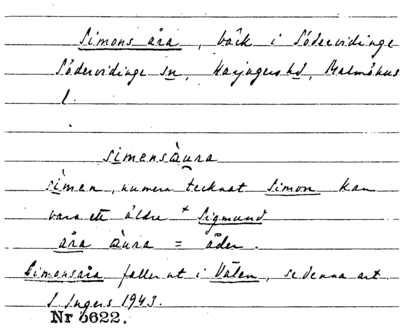 Simons åra, bäck i Södervidinge
Södervidinge sn, Harjagers hd, Malmöhus
l.
simensàura
sìmen, numera tecknat Simon kan
vara ett äldre + Sigmund
åra àura = åder.
Simonsåra faller ut i Välen, se denna art
I. Ingers 1943.
Nr 5622.